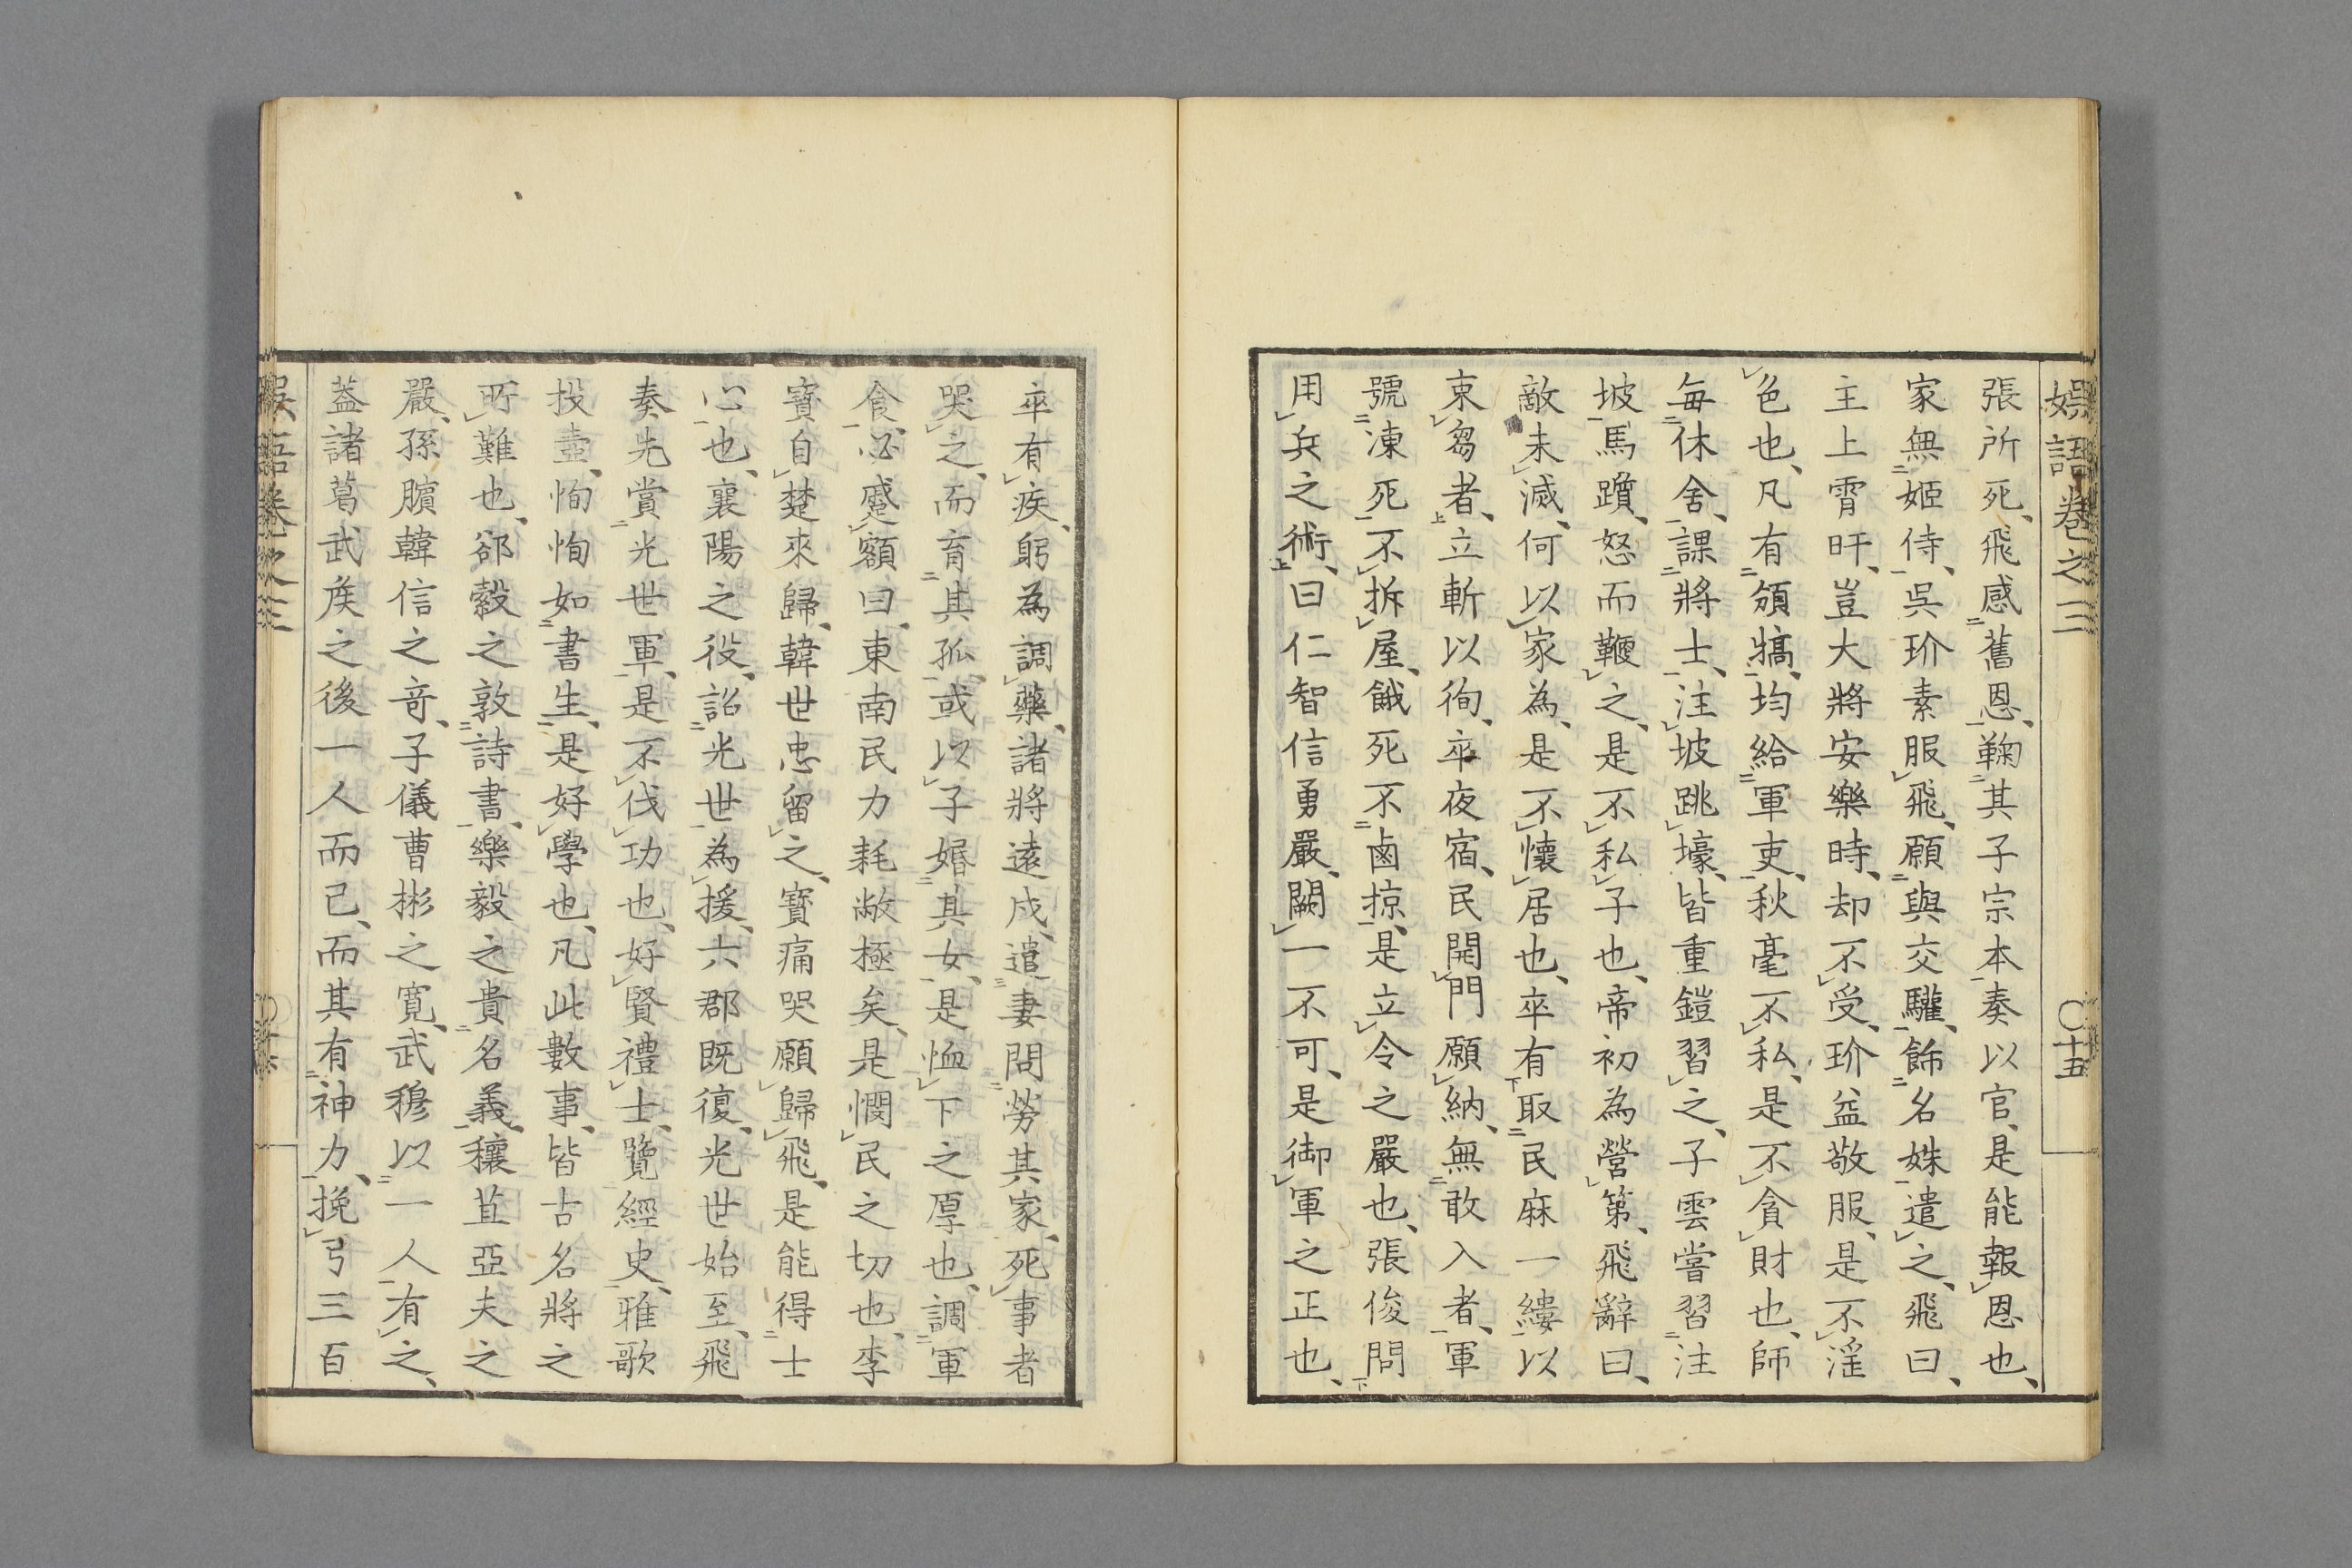 娯語卷之三 〇十五
張所死、飛感舊恩、鞠其子宗本奏以官、是能報恩也、
家無姬侍、吳玠素服飛、願與交驩、飾名姝遣之、飛曰、
主上霄旰、豈大將安樂時、却不受、玠益敬服、是不淫
色也、凡有頒犒、均給軍吏、秋毫不私、是不貪財也、師
每休舍、課將士、注坡跳壕、皆重鎧習之、子雲嘗習注
坡、馬躓、怒而鞭之、是不私子也、帝初為營第、飛辭曰、
敵未滅、何以家為、是不懷居也、卒有取民麻一縷以
束芻者、立斬以徇、卒夜宿、民開門願納、無敢入者、軍
號凍死不拆屋、餓死不鹵掠、是立令之嚴也、張俊問
用兵之術、曰仁智信勇嚴、闕一不可、是御軍之正也、
卒有疾、躬為調藥、諸將遠戍、遣妻問勞其家、死事者
哭之、而育其孤、或以子婚其女、是恤下之厚也、調軍
食、必蹙額曰、東南民力耗敝極矣、是憫民之切也、李
寶自楚來歸、韓世忠留之、寶痛哭願歸飛、是能得士
心也、襄陽之役、詔光世為援、六郡既復、光世始至、飛
奏先賞光世軍、是不伐功也、好賢禮士、覽經史、雅歌
投壺、恂恂如書生、是好學也、凡此數事、皆古名將之
所難也、郤縠之敦詩書、樂毅之貴名義、穰苴亞夫之
嚴、孫臏韓信之奇、子儀曹彬之寬、武穆以一人有之、
蓋諸葛武侯之後一人而已、而其有神力、挽弓三百
娯語卷之三